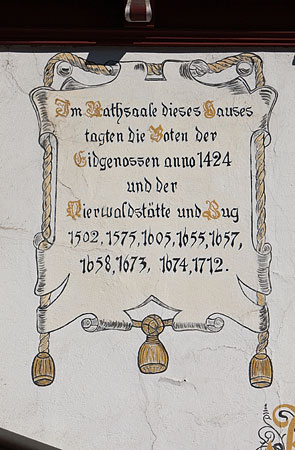 Im Rathsaale dieses Hauses
tagten die Boten der
Eidgenossen anno 1424
und der
Vierwaldstätte und Zug
1502, 1575, 1605, 1655, 1657,
1658, 1673, 1674, 1712.